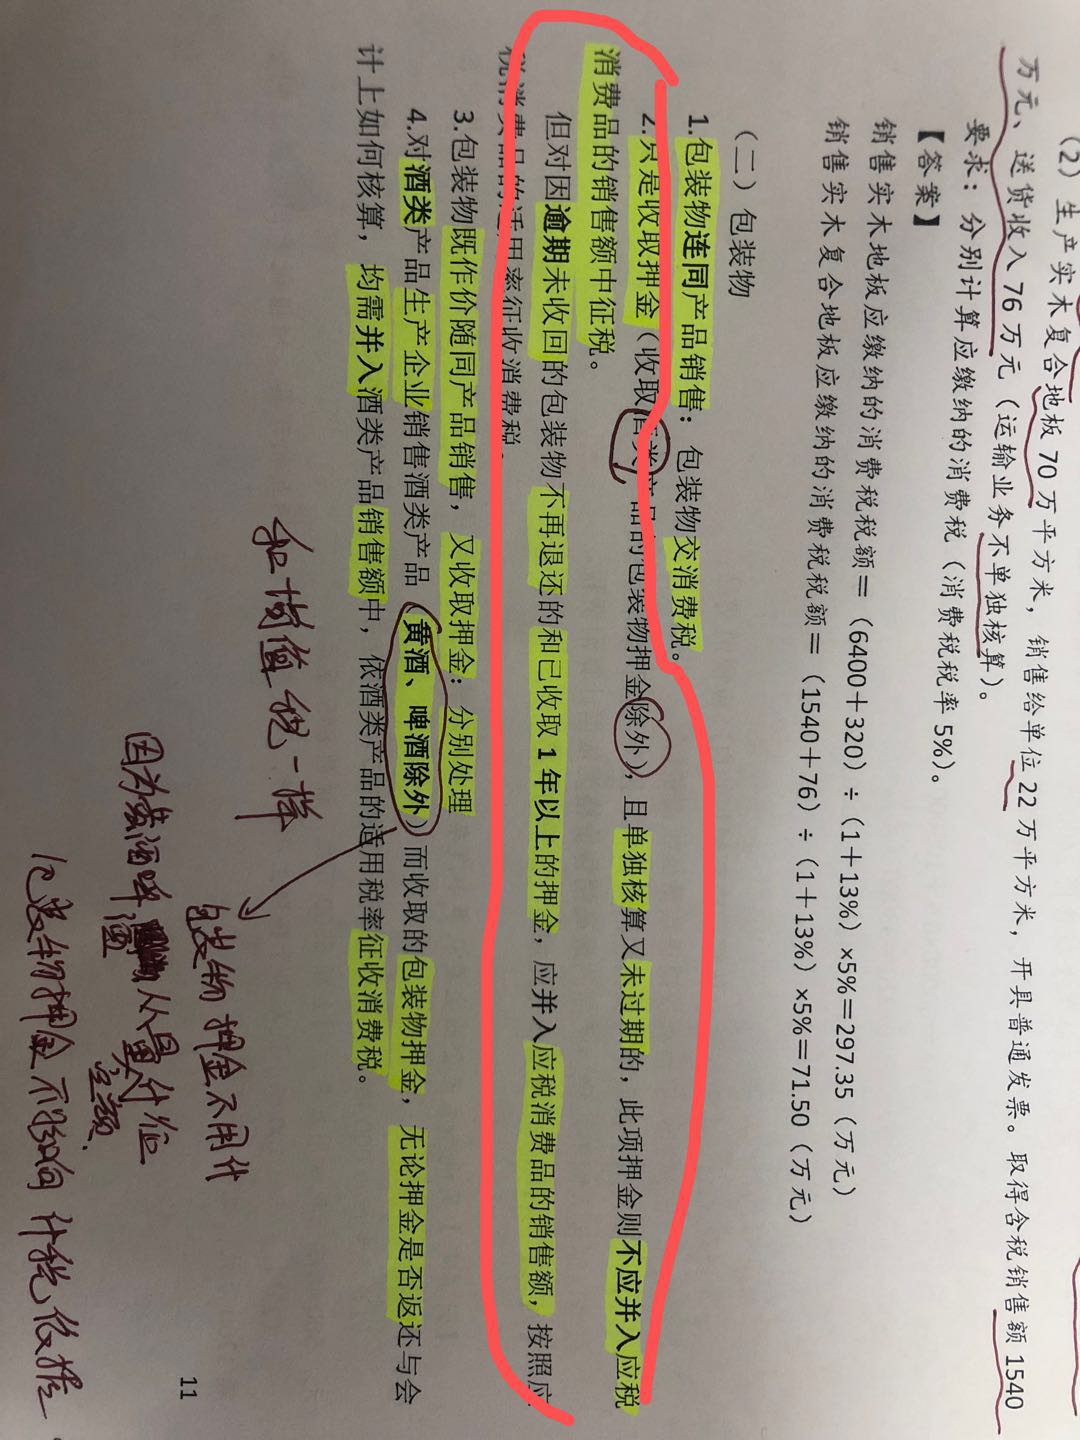 （2）生产实木复合地板 70 万平方米，销售给单位 22 万平方米，开具普通发票。取得含税销售额 1540
万元、送货收入 76 万元（运输业务不单独核算）。
要求：分别计算应缴纳的消费税（消费税税率 5%）。
【答案】
销售实木地板应缴纳的消费税税额＝（6400＋320）÷（1＋13%）×5%＝297.35（万元）
销售实木复合地板应缴纳的消费税税额＝（1540＋76）÷（1＋13%）×5%＝71.50（万元）
（二）包装物
1.包装物连同产品销售：包装物交消费税。
2.只是收取押金（收取酒类产品的包装物押金除外），且单独核算又未过期的，此项押金则不应并入应税
消费品的销售额中征税。
但对因逾期未收回的包装物不再退还的和已收取 1 年以上的押金，应并入应税消费品的销售额，按照应
税消费品的适用率征收消费税。
3.包装物既作价随同产品销售，又收取押金：分别处理
4.对酒类产品生产企业销售酒类产品（黄酒、啤酒除外）而收取的包装物押金，无论押金是否返还与会
计上如何核算，均需并入酒类产品销售额中，依酒类产品的适用税率征收消费税。
和增值税一样
包装物押金不用计
因为黄酒啤酒从量计征
定额.
包装物押金不影响计税依据
11